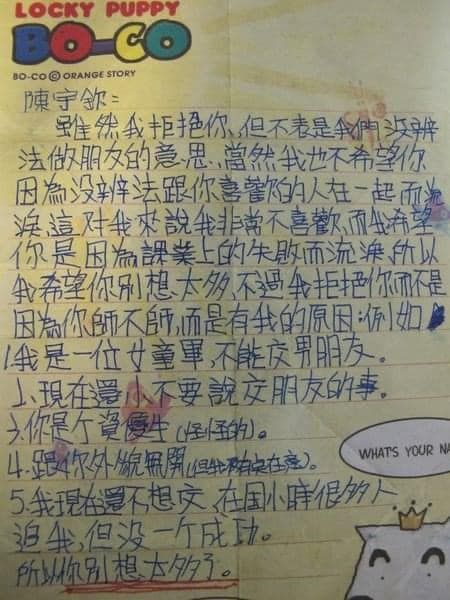 LOCKY PUPPY
BO-CO
BO-CO © ORANGE STORY
陳守欽:
雖然我拒絕你、但不表是我們沒辨
法做朋友的意思、當然我也不希望你
因為没辨法跟你喜歡的人在一起而流
淚、這对我來說我非常不喜歡、而我希望
你是因為課業上的失敗而流淚、所以
我希望你別想太多、不過我拒絕你而不是
因為你師不師、而是有我的原因:例如
1.我是一位女童軍、不能交男朋友。
2、現在還小不要說交朋友的事。
3.你是个資優生(怪怪的)。
4.跟你外貌無關(但我有在意)。
5.我現在還不想交、在国小時很多人
追我、但没一个成功。
所以你別想太多了。
WHAT'S YOUR NA